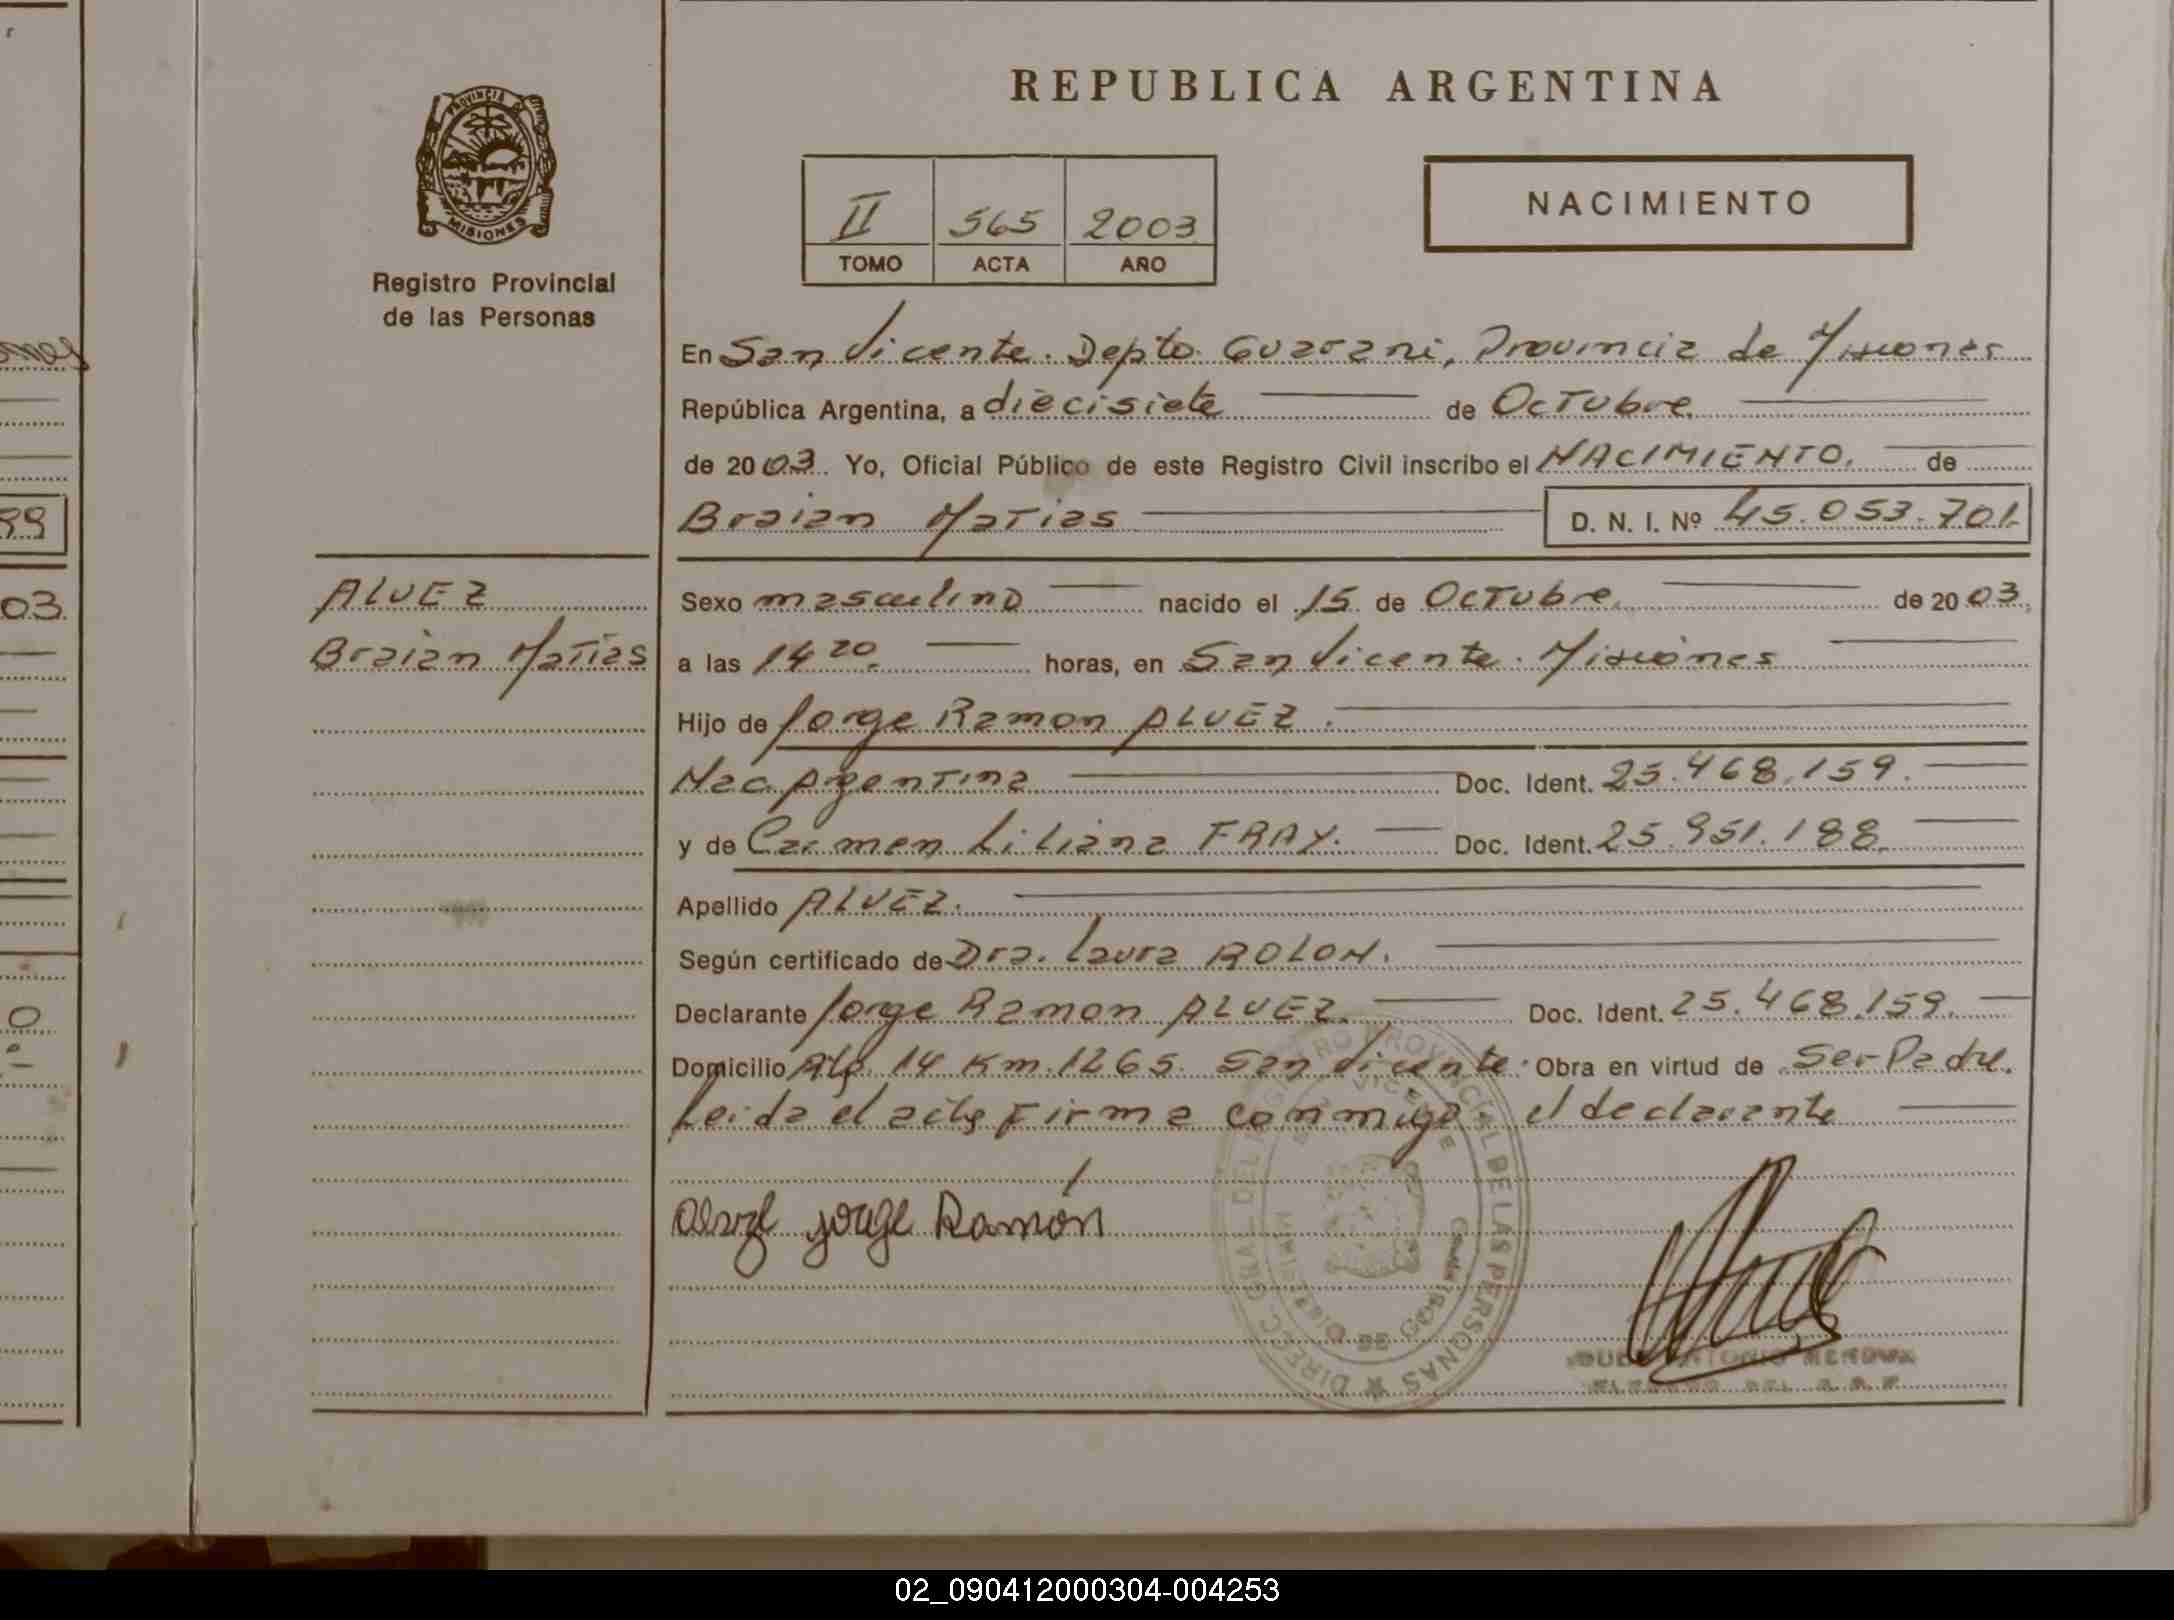 PROVINCIA DE
MISIONES
Registro Provincial
de las Personas
REPUBLICA ARGENTINA
II 565 2003
TOMO ACTA AÑO
NACIMIENTO
En San Vicente. Depto Guarani, Provincia de Misiones
República Argentina, a diecisiete de Octubre
de 2003. Yo, Oficial Público de este Registro Civil inscribo el NACIMIENTO. de
Braian Matias D. N. I. Nº 45.053.701
ALVEZ
Braian Matias
Sexo masculino nacido el 15 de Octubre de 2003.
a las 14 20. horas, en San Vicente. Misiones
Hijo de Jorge Ramon ALVEZ.
Nac. Argentina Doc. Ident. 25.468.159.
y de Carmen Liliana FRAY. Doc. Ident. 25.951.188.
Apellido ALVEZ.
Según certificado de Dra. Laura ROLON.
Declarante Jorge Ramon ALVEZ. Doc. Ident. 25.468.159.
Domicilio 14 Km. 1265. San Vicente. Obra en virtud de Ser Padre.
Leida el acta Firma conmigo el declarante
Jorge Ramón
DIREC. GRAL DEL REGISTRO PROVINCIAL DE LAS PERSONAS
SAN VICENTE
MINISTERIO DE GOBIERNO
ANTONIO
99
03.
02_090412000304-004253